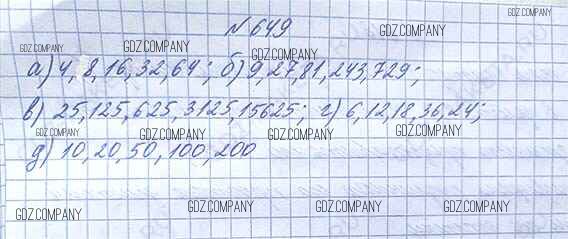 №649
GDZ.COMPANY GDZ.COMPANY GDZ.COMPANY GDZ.COMPANY
а) 4, 8, 16, 32, 64; б) 9, 27, 81, 243, 729;
в) 25, 125, 625, 3125, 15625; г) 6, 12, 18, 36, 24;
GDZ.COMPANY GDZ.COMPANY GDZ.COMPANY GDZ.COMPANY
д) 10, 20, 50, 100, 200
GDZ.COMPANY GDZ.COMPANY GDZ.COMPANY GDZ.COMPANY